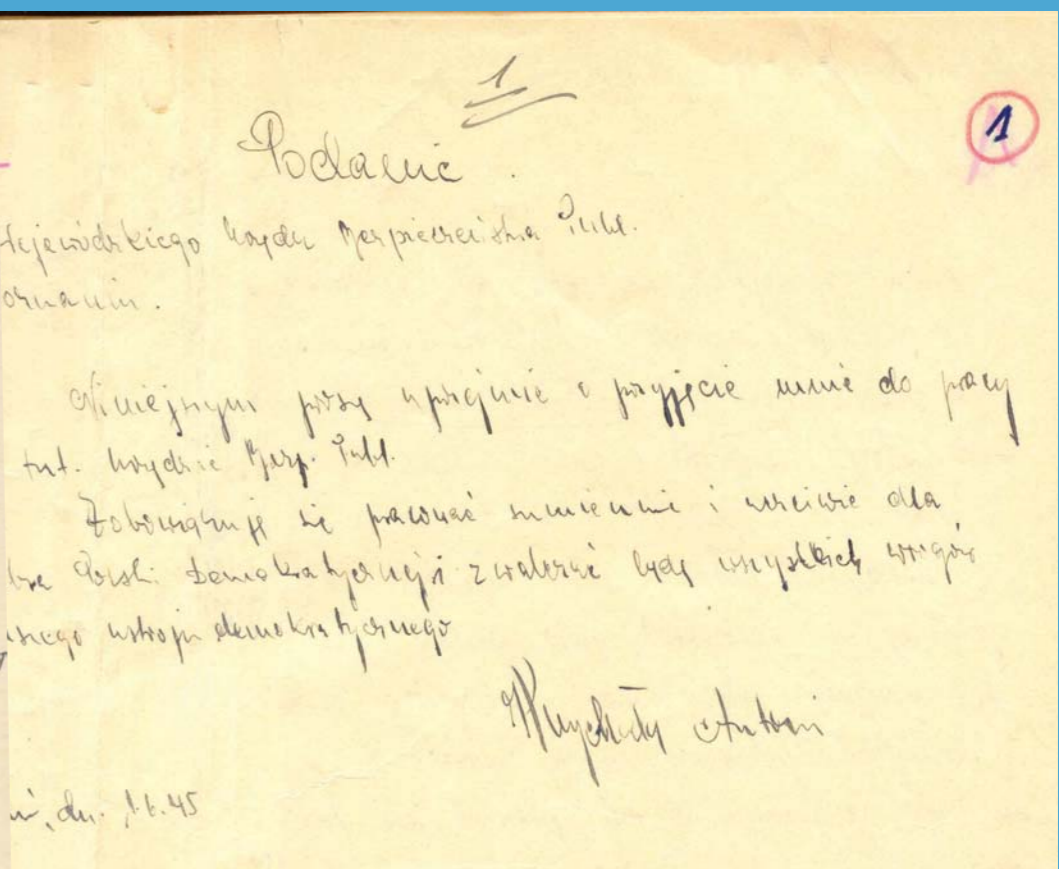 1
1
Podanie.
Wojewódzkiego Urzędu Bezpieczeństwa Publ.
oznaniu.
Niniejszym proszę uprzejmie o przyjęcie mnie do pracy
tut. Urzędzie Bezp. Publ.
Zobowiązuję się pracować sumiennie i uczciwie dla
bra Polski Demokratycznej i zwalczać będę wszystkich wrogów
szego ustroju demokratycznego
Antoni
ń, dn. 1.6.45